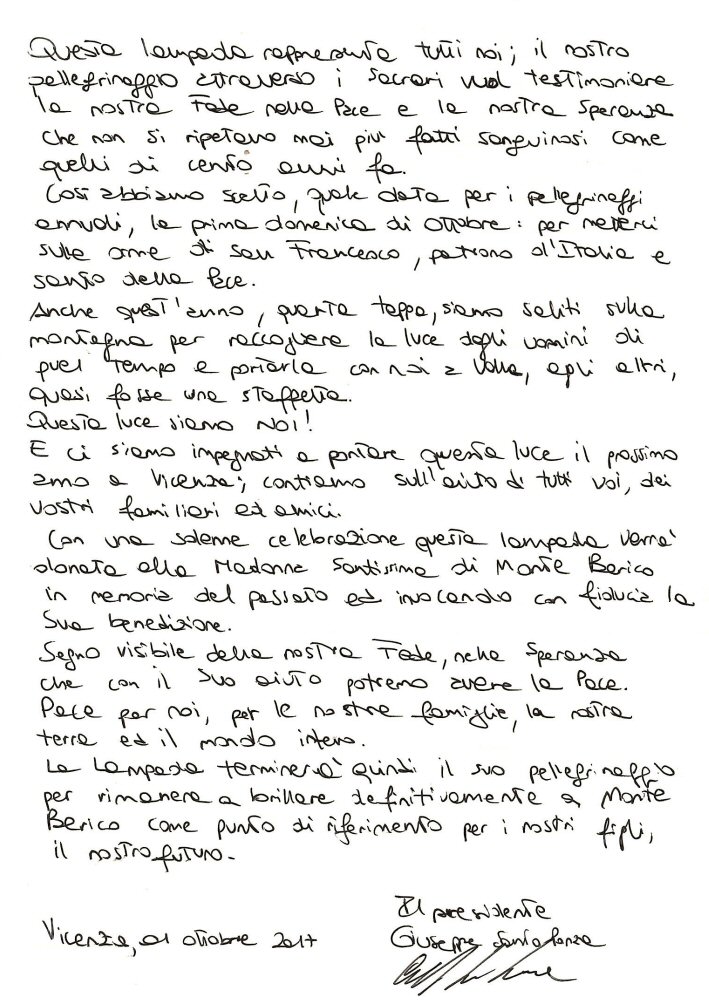 Questa lampada rappresenta tutti noi; il nostro
pellegrinaggio attraverso i Sacrari vuol testimoniare
la nostra Fede nella Pace e la nostra Speranza
che non si ripetano mai più fatti sanguinosi come
quelli di cento anni fa.
Così abbiamo scelto, quale data per i pellegrinaggi
annuali, la prima domenica di ottobre: per metterci
sulle orme di San Francesco, patrono d'Italia e
santo della Pace.
Anche quest'anno, quarta tappa, siamo saliti sulla
montagna per raccogliere la luce degli uomini di
quel tempo e portarla con noi a valle, agli altri,
quasi fosse una staffetta.
Questa luce siamo NOI!
E ci siamo impegnati a portare questa luce il prossimo
anno a Vicenza; contiamo sull'aiuto di tutti voi, dei
vostri familiari ed amici.
Con una solenne celebrazione questa lampada verrà
donata alla Madonna Santissima di Monte Berico
in memoria del passato ed invocando con fiducia la
Sua benedizione.
Segno visibile della nostra Fede, nella Speranza
che con il Suo aiuto potremo avere la Pace.
Pace per noi, per le nostre famiglie, la nostra
terra ed il mondo intero.
La Lampada terminerà quindi il suo pellegrinaggio
per rimanere a brillare definitivamente a Monte
Berico come punto di riferimento per i nostri figli,
il nostro futuro.
Il presidente
Vicenza, 01 ottobre 2017 Giuseppe